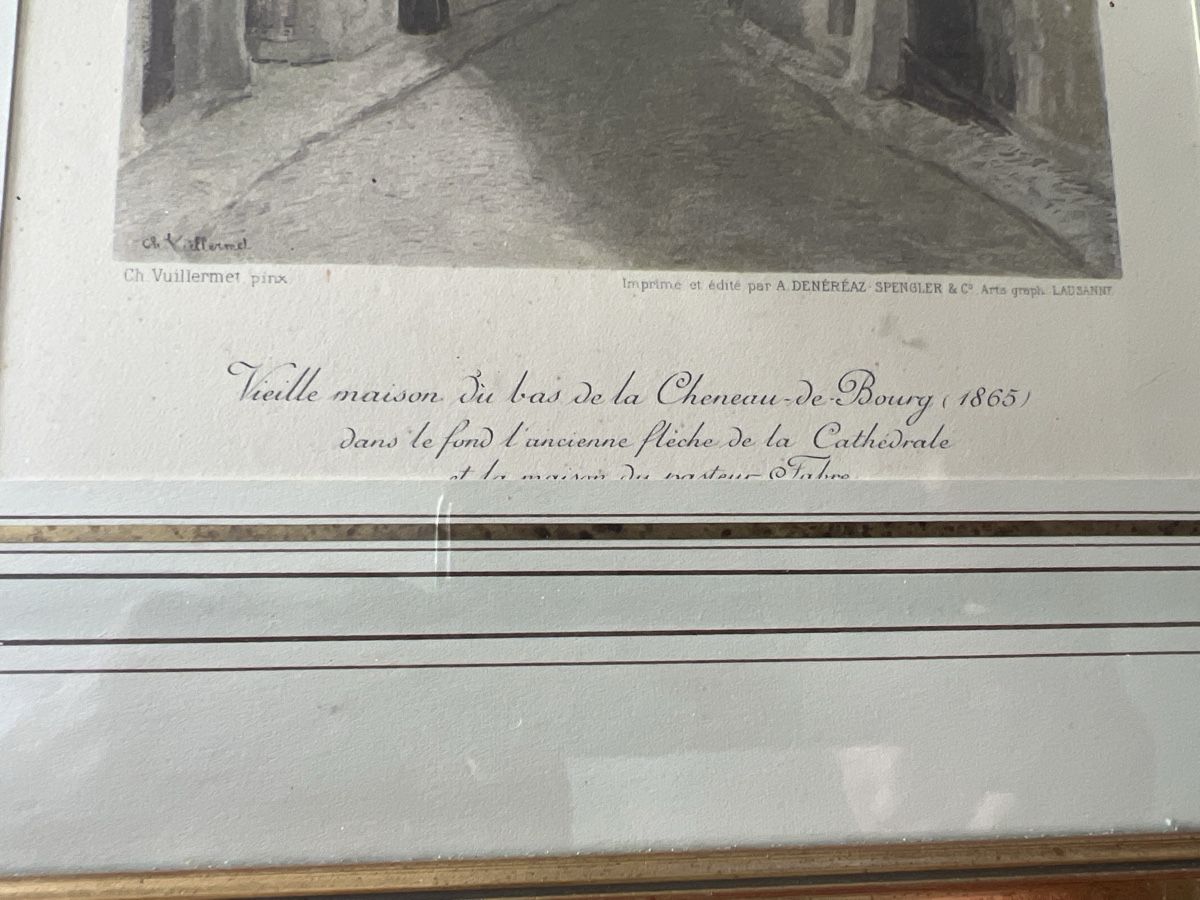 Ch. Vuillermet
Ch. Vuillermet pinx.
Imprimé et édité par A. DENÉRÉAZ-SPENGLER & Cº. Arts graph. LAUSANNE
Vieille maison du bas de la Cheneau-de-Bourg (1865)
dans le fond l'ancienne flèche de la Cathédrale
et la maison du pasteur Fabre